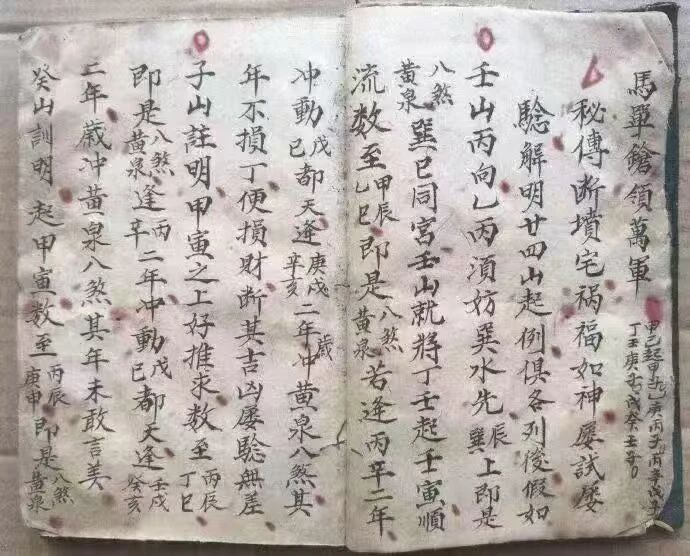 馬單鎗領萬軍
甲己起甲子乙庚丙子丙辛戊子
丁壬庚子戊癸壬子
秘傳断墳宅祸福如神屡試屡
騐解明廿四山起例俱各列後假如
壬山丙向乙丙湏妨巽水先辰巽上即是
八煞黄泉巽巳同宫壬山就將丁壬起壬寅順
流数至甲辰乙巳即是八煞黄泉若逢丙辛二年
冲動戊巳都天逢庚戌辛亥二年歲冲黄泉八煞其
年不損丁便損财断其吉凶屡騐無差
子山註明甲寅之上好推求数至丙辰丁巳
即是八煞黄泉逢丙辛二年冲動戊巳都天逢壬戌癸亥
二年歲冲黄泉八煞其年未敢言美
癸山訓明起甲寅数至丙辰庚申即是八煞黄泉